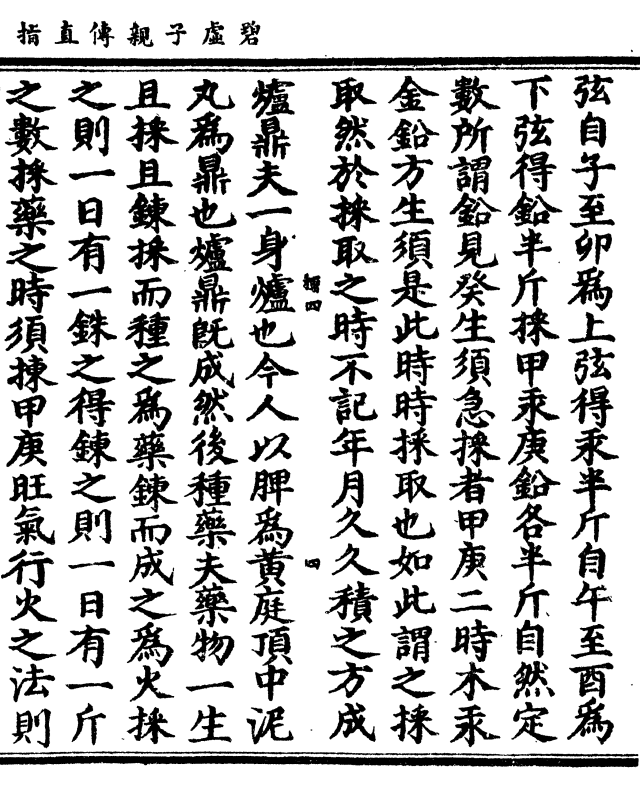 碧虛子親傳直指
弦自子至卯為上弦得汞半斤自午至酉為
下弦得鉛半斤採甲汞庚鉛各半斤自然定
數所謂鉛見癸生須急採者甲庚二時木汞
金鉛方生須是此時時採取也如此謂之採
取然於採取之時不記年月久久積之方成
爐鼎夫一身爐也今人以脾為黃庭頂中泥
丸為鼎也爐鼎既成然後種藥夫藥物一生
且採且鍊採而種之為藥鍊而成之為火採
之則一日有一銖之得鍊之則一日有一斤
之數採藥之時須揀甲庚旺氣行火之法則
四